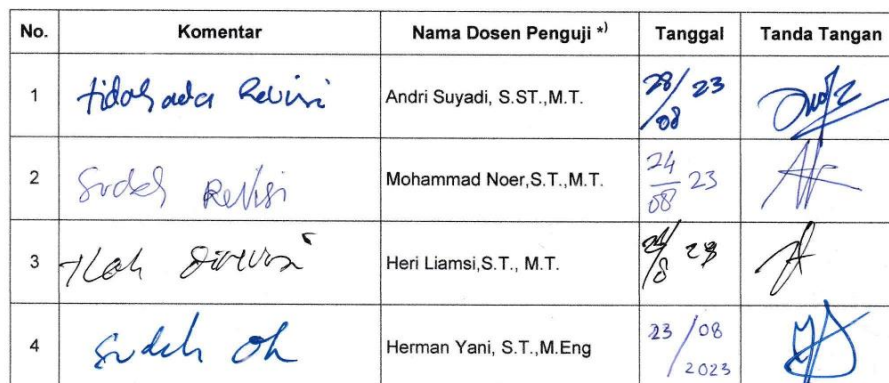 No. Komentar Nama Dosen Penguji *) Tanggal Tanda Tangan
1 tidak ada Revisi Andri Suyadi, S.ST.,M.T. 28/08 23
2 Sudah Revisi Mohammad Noer,S.T.,M.T. 24/08 23
3 Tlah direvisi Heri Liamsi,S.T., M.T.
4 Sudah Ok Herman Yani, S.T.,M.Eng 23/08 2023